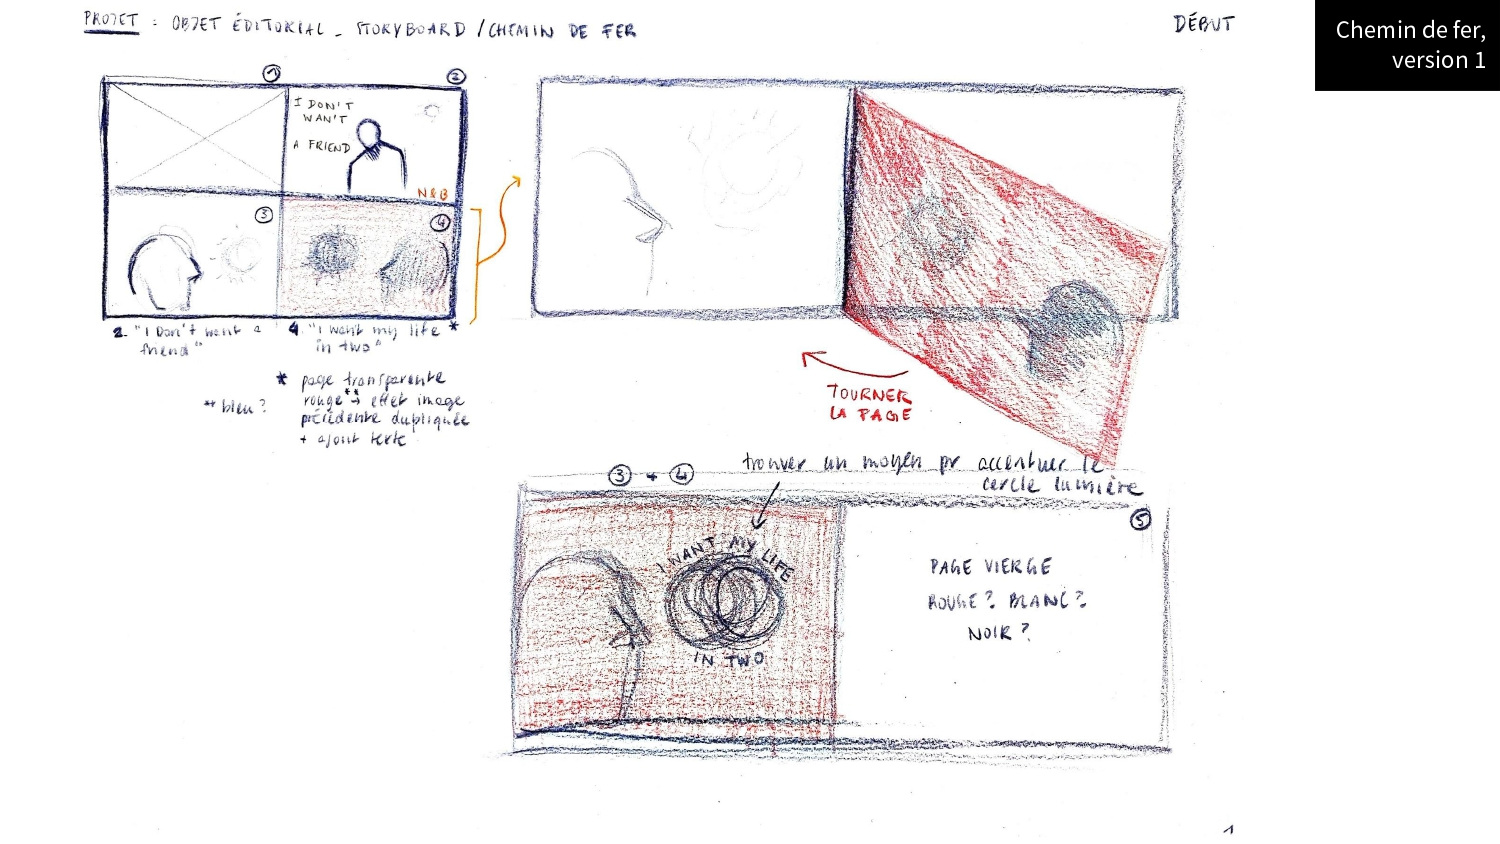 PROJET : OBJET ÉDITORIAL _ STORYBOARD / CHEMIN DE FER
DÉBUT
Chemin de fer,
version 1
1
2
I DON'T
WAN'T
A FRIEND
N&B
3
4
2. "I Don't want a
friend"
4. "I want my life *
in two"
* page transparente
rouge** → effet image
précédente dupliquée
+ ajout texte
** bleu ?
TOURNER
LA PAGE
3 + 4
trouver un moyen pr accentuer le
cercle lumière
5
I WANT MY LIFE
IN TWO
PAGE VIERGE
ROUGE ? BLANC ?
NOIR ?
1